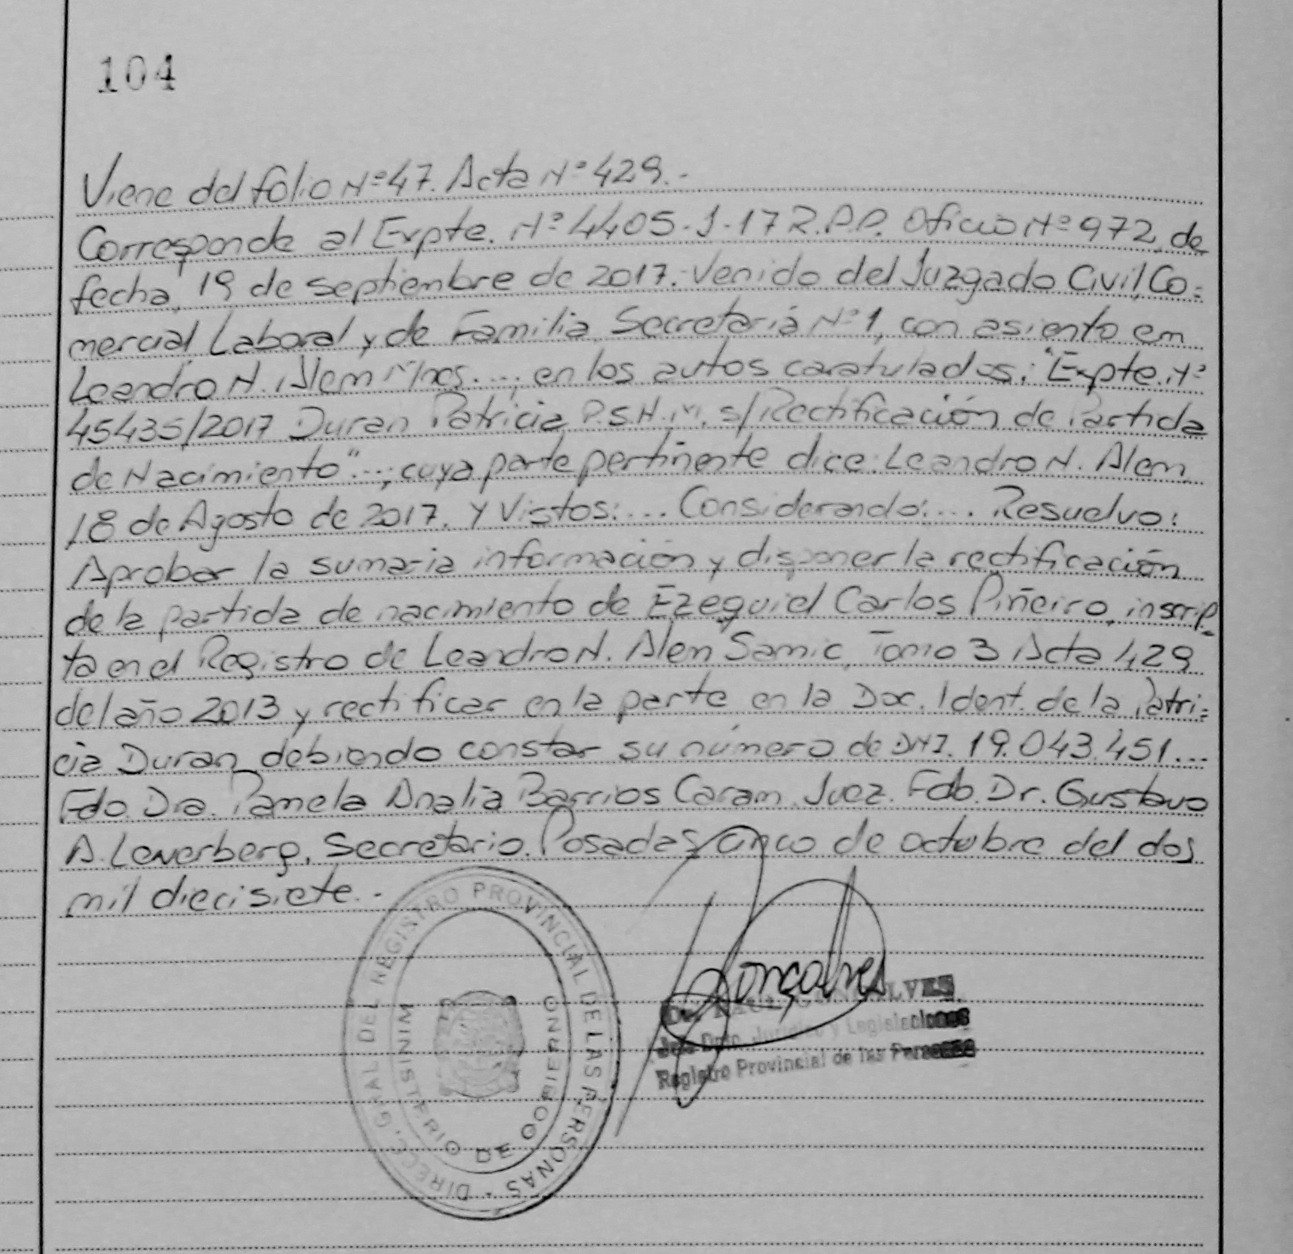 104
Viene del folio Nº 47. Acta Nº 429.-
Corresponde al Expte. Nº 4405-J-17 R.P.P. Oficio Nº 972, de
fecha, 19 de septiembre de 2017. Venido del Juzgado Civil, Co=
mercial Laboral y de Familia Secretaria Nº 1, con asiento en
Leandro N. Alem Mnes...; en los autos caratulados: "Expte. Nº
45435/2017 Duran Patricia P.S.H.M. s/Rectificación de Partida
de Nacimiento"...; cuya parte pertinente dice: Leandro N. Alem,
18 de Agosto de 2017. Y Vistos:... Considerando:... Resuelvo:
Aprobar la sumaria información y disponer la rectificación
de la partida de nacimiento de Ezequiel Carlos Piñeiro, inscrip-
ta en el Registro de Leandro N. Alem Samic, Tomo 3 Acta 429
del año 2013 y rectificar en la parte en la Doc. Ident. de la Patri=
cia Duran debiendo constar su número de DNI. 19.043.451...
Fdo. Dra. Pamela Analia Barrios Caram. Juez. Fdo. Dr. Gustavo
A. Leverberg, Secretario. Posadas, cinco de octubre del dos
mil diecisiete.-
DIREC. GRAL DEL REGISTRO PROVINCIAL DE LAS PERSONAS
MINISTERIO DE GOBIERNO
Gonçalves
Dr. RAUL GONCALVES
Jefe Dpto. Jurídico y Legislaciones
Registro Provincial de las Personas